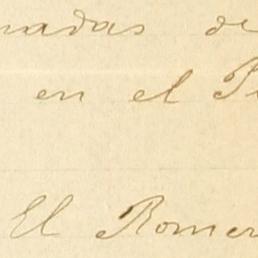 nadas de
en el P
El Romer